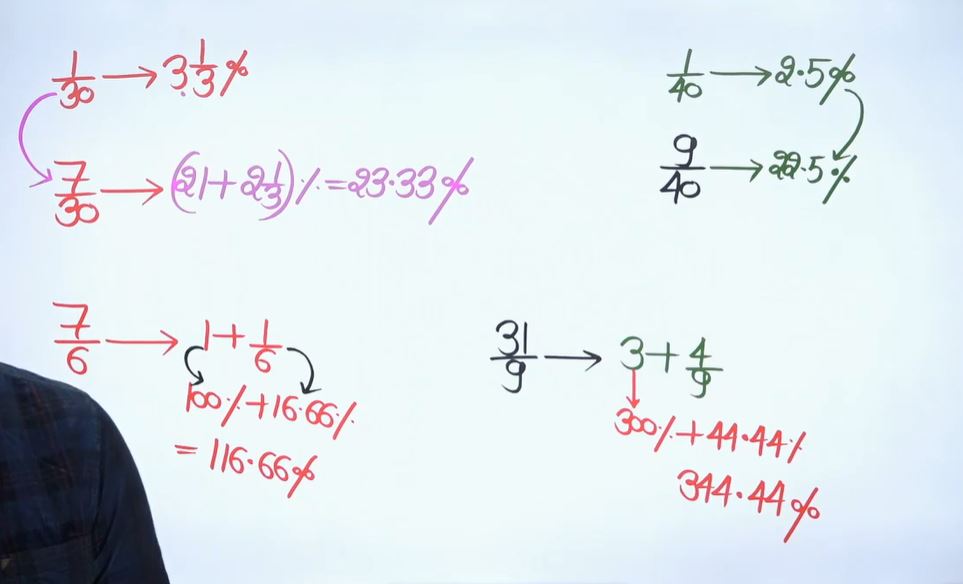 1/30 → 3 1/3 %
7/30 → (21 + 2 1/3) % = 23.33%
1/40 → 2.5%
9/40 → 22.5%
7/6 → 1 + 1/6
100% + 16.66%
= 116.66%
31/9 → 3 + 4/9
300% + 44.44%
344.44%